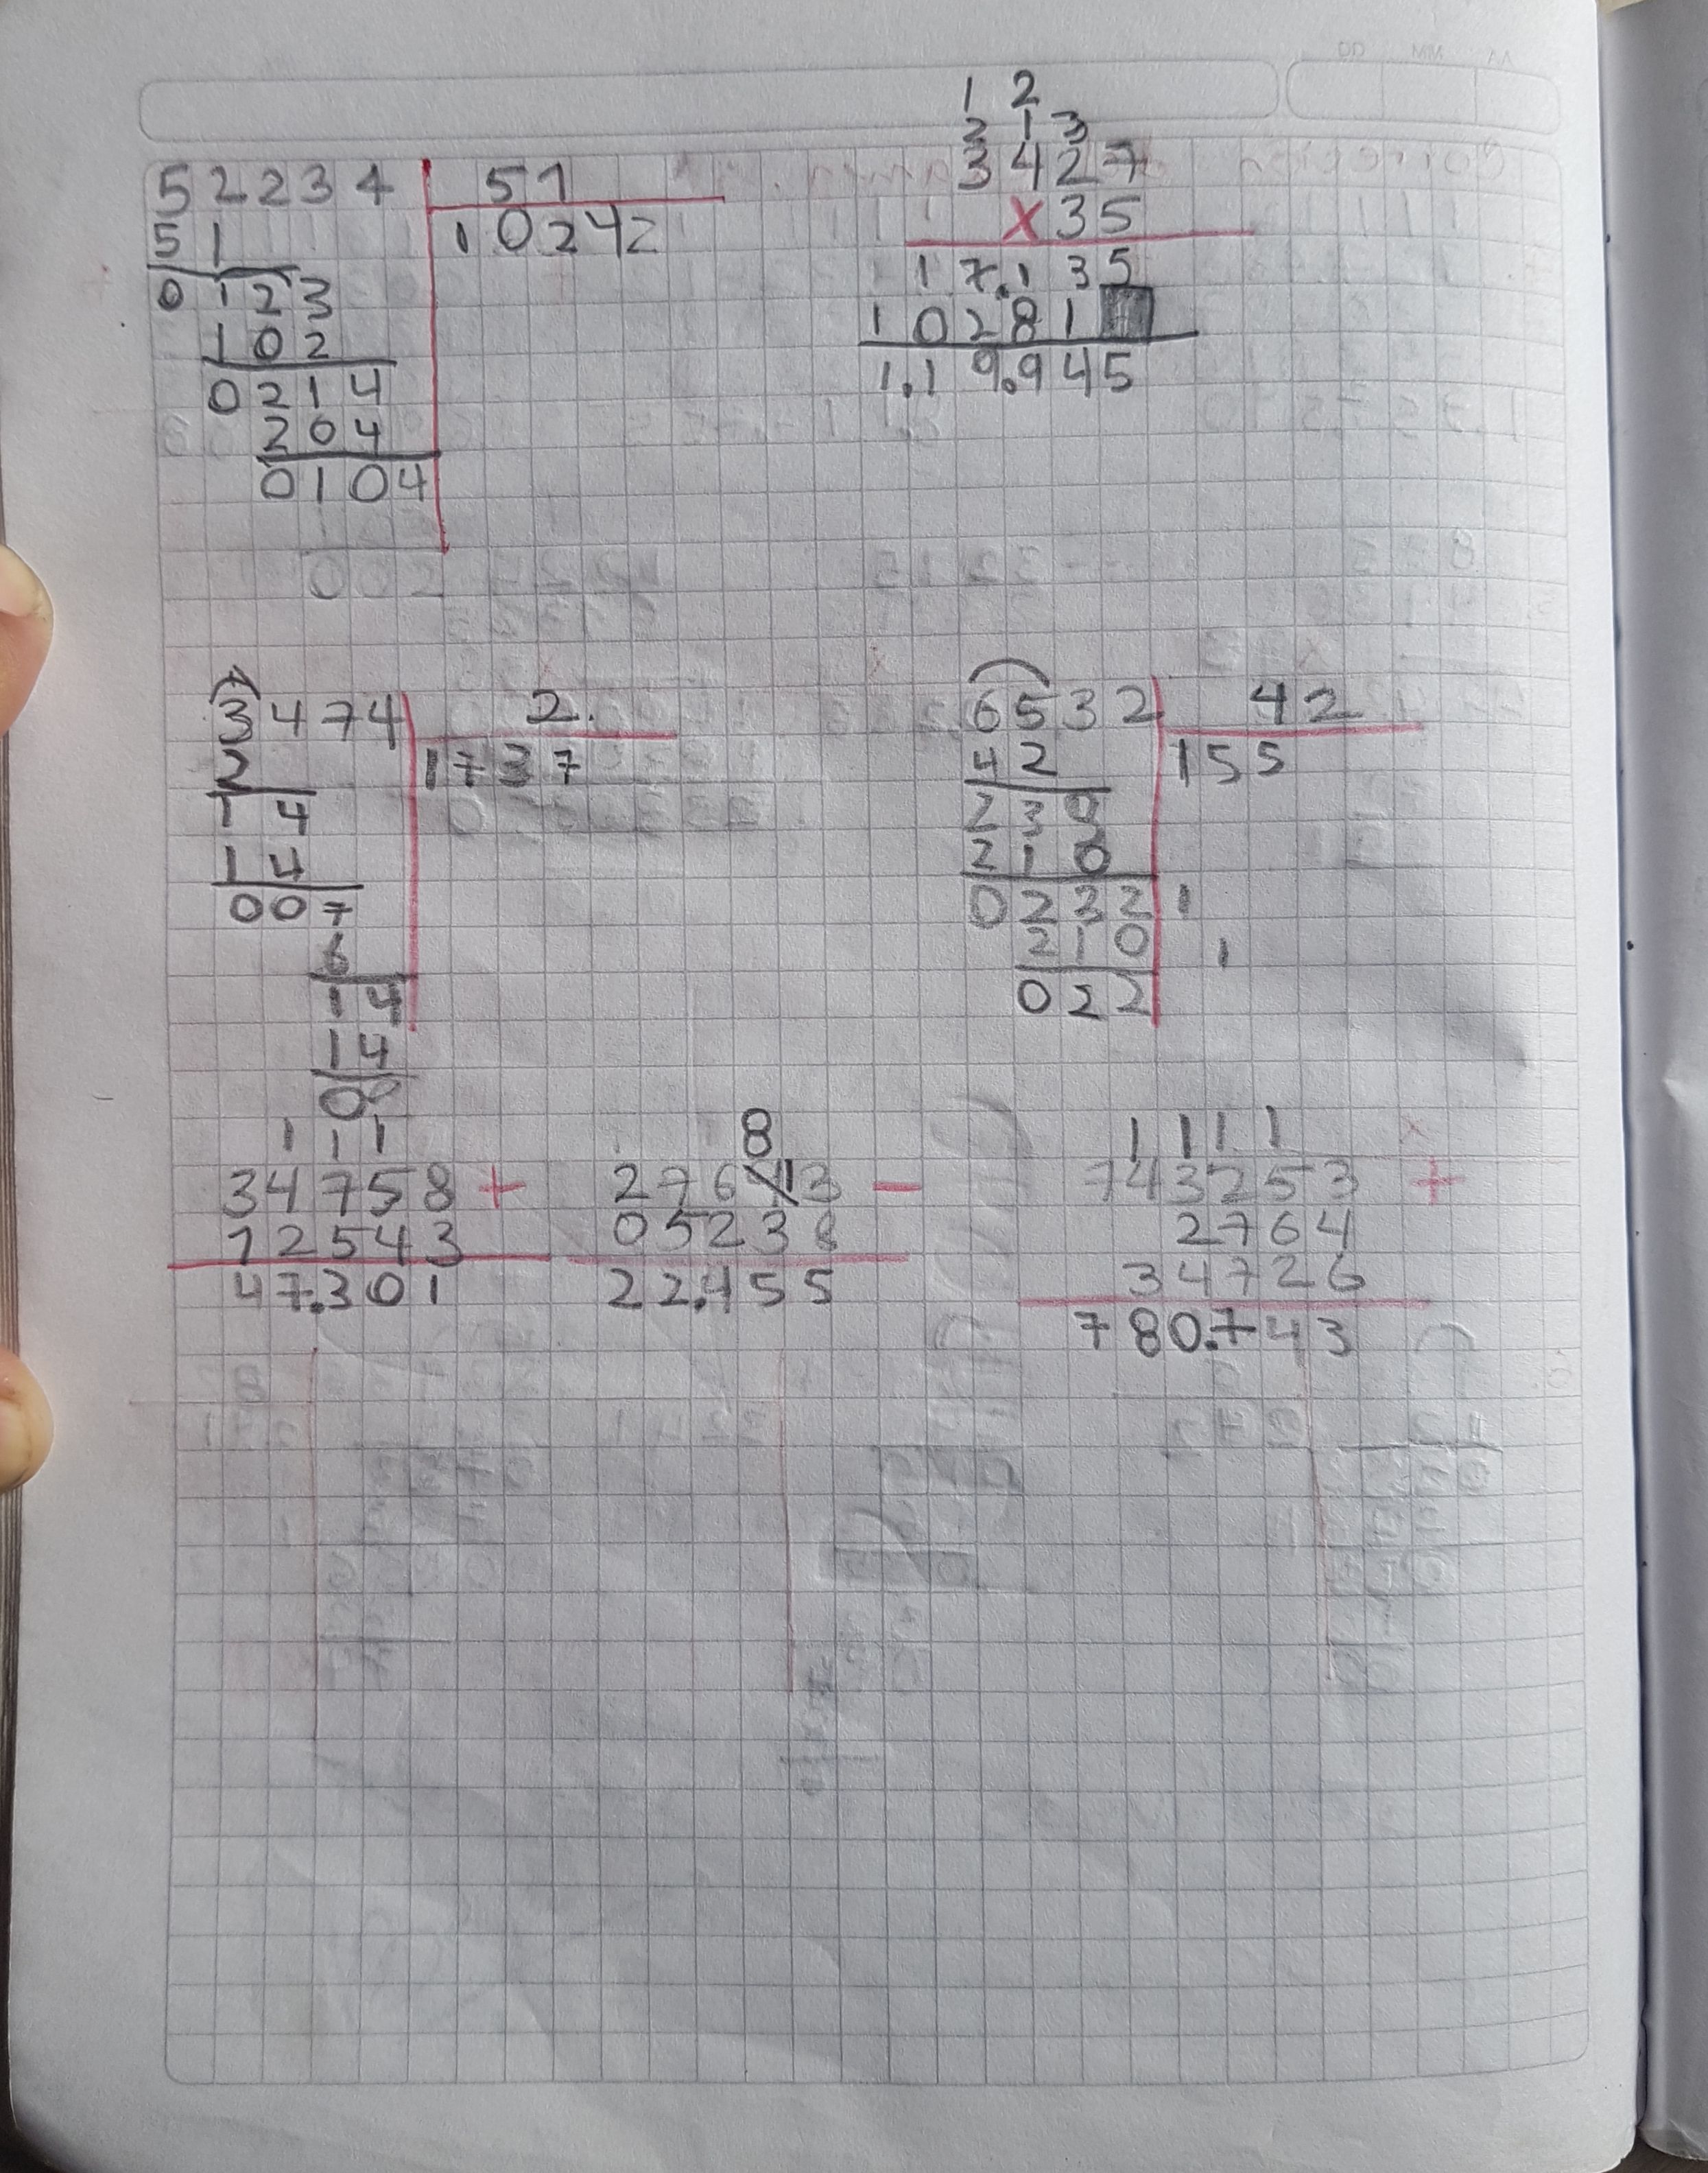 DD MM AA
52234 51
51 10242
0123
102
0214
204
0104
1 2
2 1 3
3427
x35
17.135
10281
1.19.945
3474 2.
2 1737
14
14
007
6
14
14
00
6532 42
42 155
23
210
0232 1
210 1
022
1 1 1
34758 +
12543
47.301
8
276 13 -
05238
22.455
1 1 1 1
743253 +
2764
34726
780.743